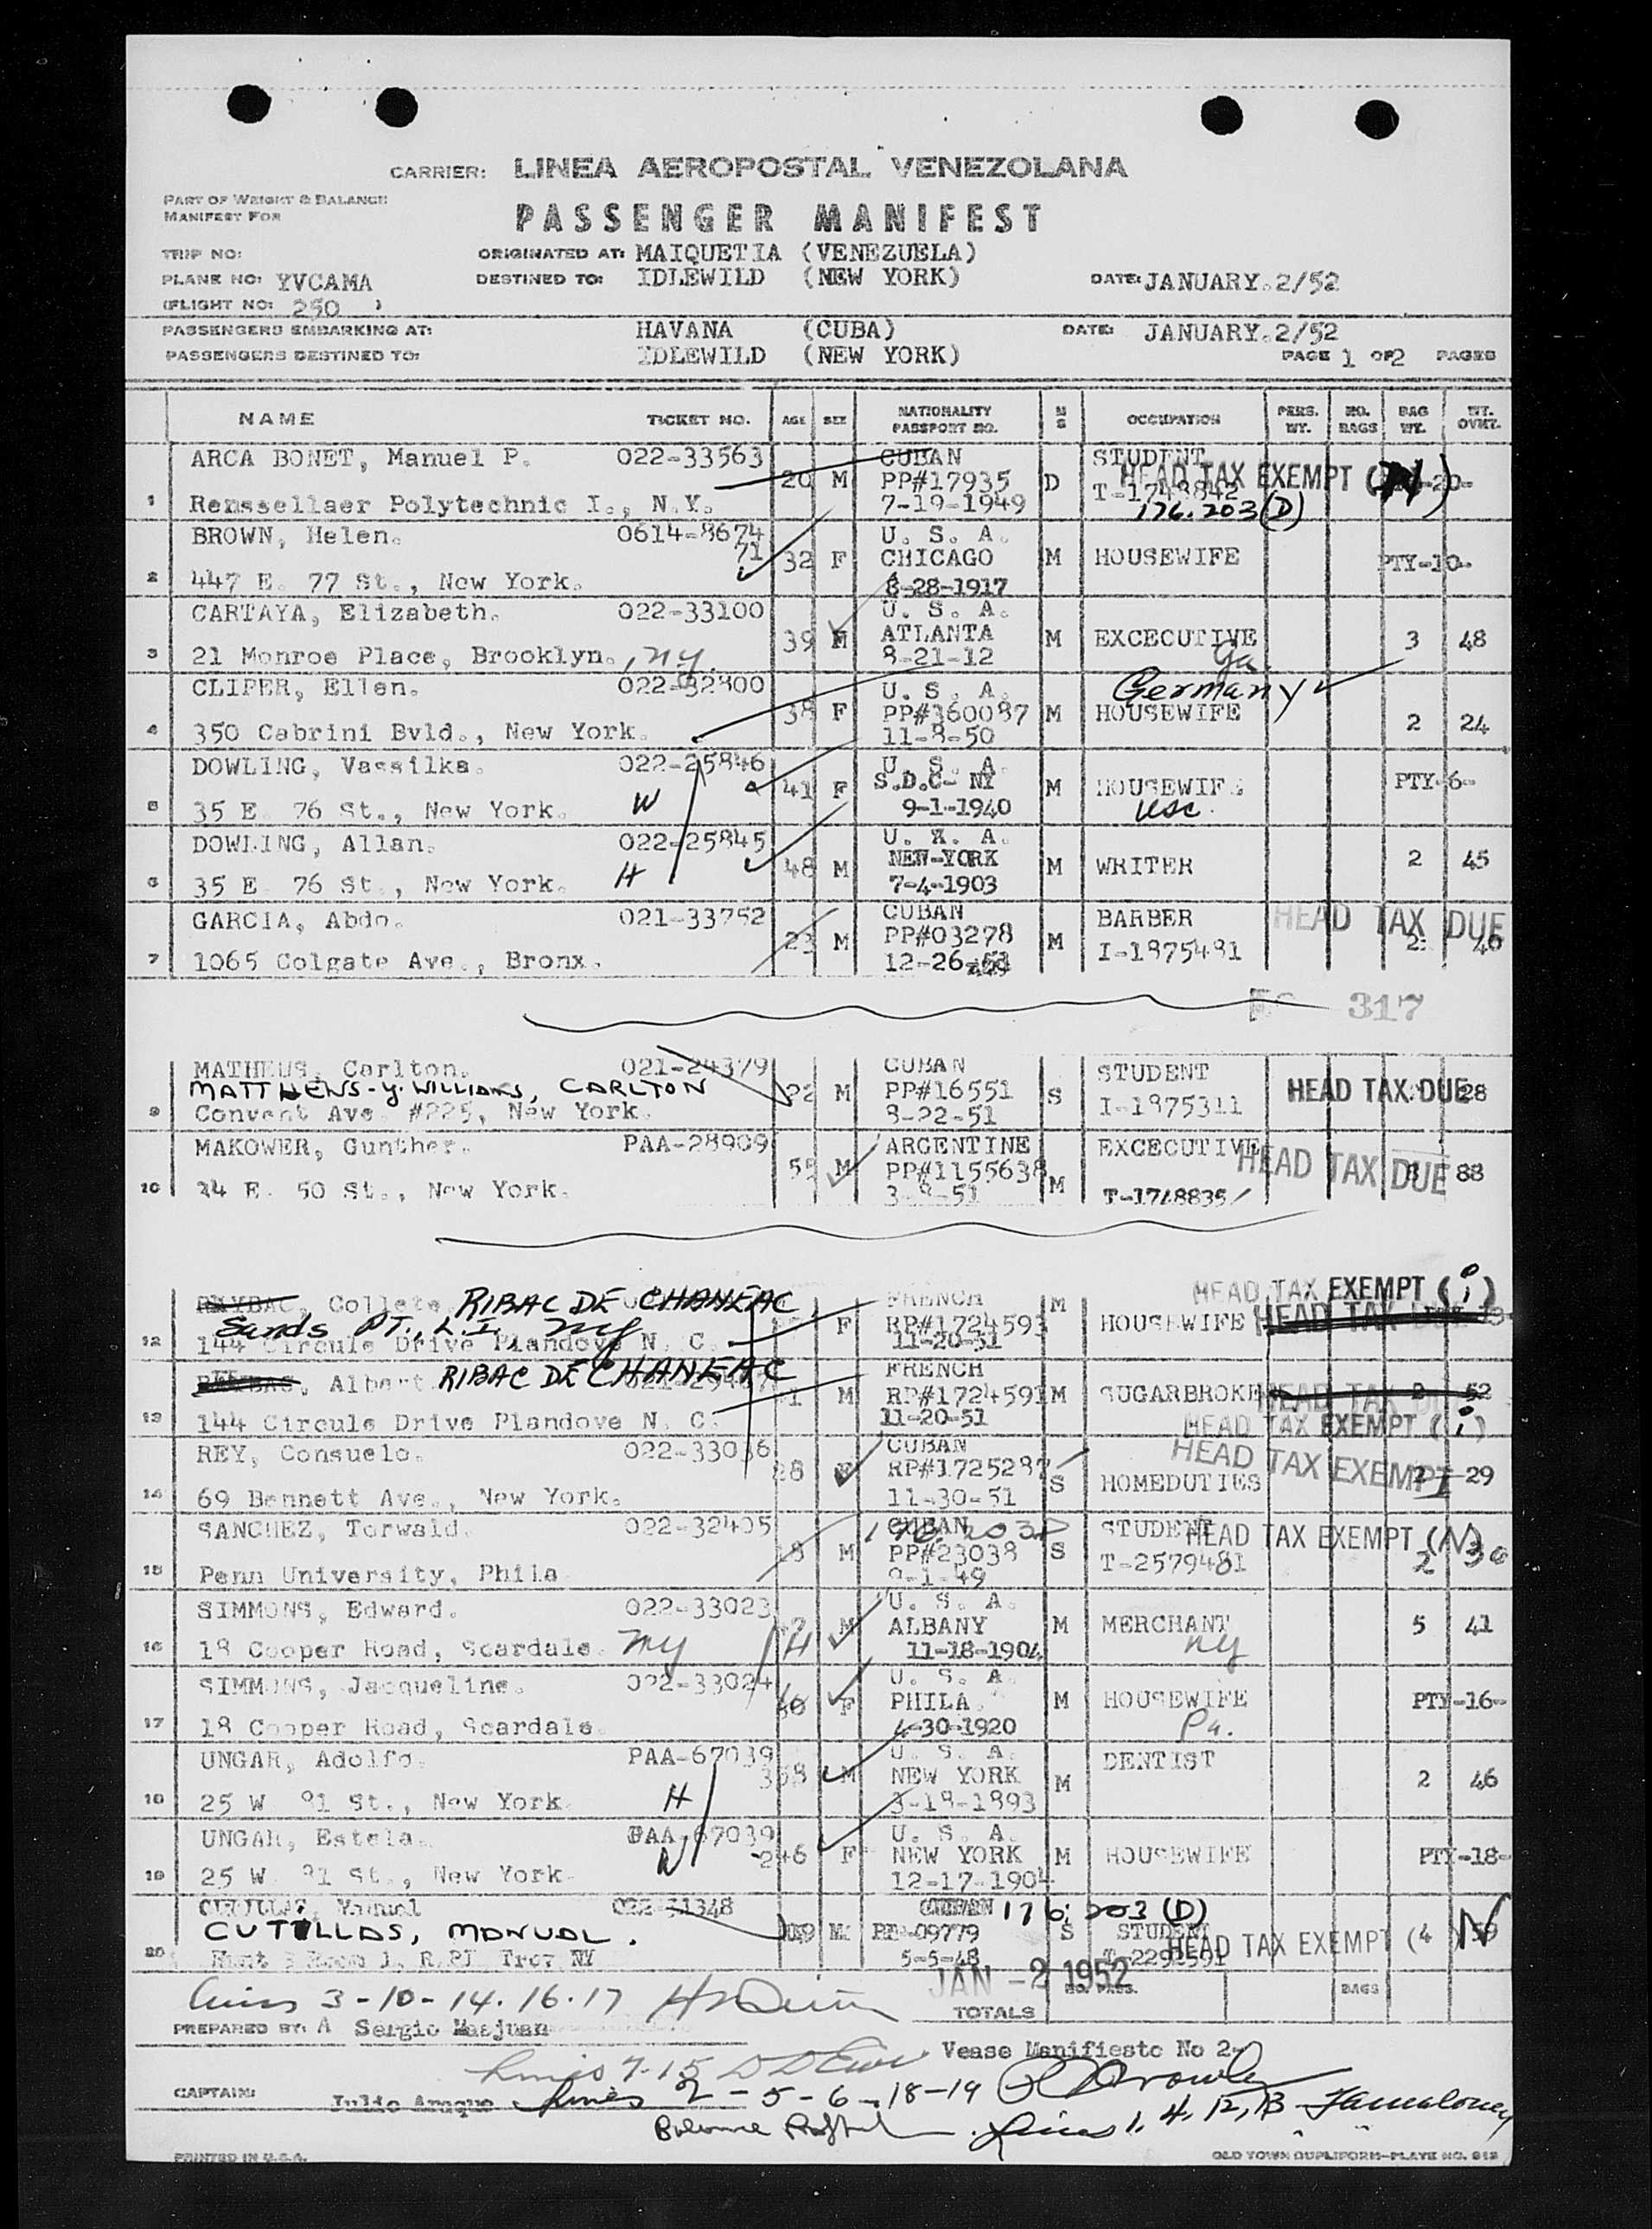 CARRIER: LINEA AEROPOSTAL VENEZOLANA
PART OF WEIGHT & BALANCE
MANIFEST FOR
PASSENGER MANIFEST
TRIP NO: ORIGINATED AT: MAIQUETIA (VENEZUELA)
PLANE NO: YVCAMA DESTINED TO: IDLEWILD (NEW YORK) DATE: JANUARY.2/52
(FLIGHT NO: 250 )
PASSENGERS EMBARKING AT: HAVANA (CUBA) DATE: JANUARY.2/52
PASSENGERS DESTINED TO: IDLEWILD (NEW YORK) PAGE 1 OF 2 PAGES
NAME TICKET NO. AGE SEX NATIONALITY PASSPORT NO. M S OCCUPATION PERS. WT. NO. BAGS BAG WT. WT. OVWT.
ARCA BONET, Manuel P. 022-33563 CUBAN STUDENT
20 M PP#17935 D T-1748842 HEAD TAX EXEMPT (N) -20-
1 Renssellaer Polytechnic I., N.Y. 7-19-1949 176.203(D)
BROWN, Helen. 0614-8674 U. S. A.
71 32 F CHICAGO M HOUSEWIFE PTY-10-
2 447 E. 77 St., New York. 8-28-1917
CARTAYA, Elizabeth. 022-33100 U. S. A.
39 M ATLANTA M EXCECUTIVE 3 48
3 21 Monroe Place, Brooklyn., ny. 8-21-12 Ga.
CLIFER, Ellen. 022-32800 U. S. A. Germany
38 F PP#360087 M HOUSEWIFE 2 24
4 350 Cabrini Bvld., New York. 11-8-50
DOWLING, Vassilka. 022-25846 U. S. A.
W 41 F S.D.C- NY M HOUSEWIFE PTY-6-
5 35 E 76 St., New York. 9-1-1940 usc.
DOWLING, Allan. 022-25845 U. X. A.
48 M NEW-YORK M WRITER 2 45
6 35 E 76 St., New York. H 7-4-1903
GARCIA, Abdo. 021-33752 CUBAN BARBER HEAD TAX DUE
23 M PP#03278 M I-1875481 2 40
7 1065 Colgate Ave., Bronx. 12-26-51
317
MATHEUS, Carlton. 021-24379 CUBAN STUDENT
MATTHENS-y-WILLIAMS, CARLTON 22 M PP#16551 S I-1875311 HEAD TAX DUE 28
9 Convent Ave #225, New York. 8-22-51
MAKOWER, Gunther. PAA-28909 ARGENTINE EXCECUTIVE HEAD TAX DUE
55 M PP#1155638 M 88
10 24 E. 50 St., New York. 3-8-51 T-1748835
HEAD TAX EXEMPT (i)
Collete RIBAC DE CHANEAC FRENCH M
Sands PT., L.I., ny F RP#1724593 HOUSEWIFE HEAD TAX
12 144 Circule Drive Plandove N. C. 11-20-51
Albert RIBAC DE CHANEAC FRENCH
M RP#1724591 M SUGARBROKE HEAD TAX 2 52
13 144 Circule Drive Plandove N. C. 11-20-51 HEAD TAX EXEMPT (i)
REY, Consuelo. 022-33036 CUBAN HEAD TAX EXEMPT
28 F RP#1725287 S HOMEDUTIES 2 29
14 69 Bennett Ave., New York. 11-30-51
SANCHEZ, Torwald. 022-32405 CUBAN STUDENT HEAD TAX EXEMPT (N)
18 M PP#23038 S T-2579481 2 30
15 Penn University, Phila 9-1-49
SIMMONS, Edward. 022-33023 U. S. A.
47 M ALBANY M MERCHANT 5 41
16 18 Cooper Road, Scardale. ny H 11-18-1904 ny
SIMMONS, Jacqueline. 022-33024 U. S. A.
F PHILA. M HOUSEWIFE PTY-16-
17 18 Cooper Road, Scardale. 4-30-1920 Pa.
UNGAR, Adolfo. PAA-67039 U. S. A. DENTIST
58 M NEW YORK M 2 46
18 25 W 81 St., New York H 3-18-1893
UNGAR, Estela. PAA-67039 U. S. A.
46 F NEW YORK M HOUSEWIFE PTY-18-
19 25 W 81 St., New York W 12-17-1904
Manuel 022-31348 CUBAN 176.203 (D)
CUTILLAS, MANUAL. 19 M PP-09779 S STUDENT
20 Hunt 3 Room 1, R.PI Troy NY 5-5-48 T-2292591 HEAD TAX EXEMPT (4 ) N
JAN -2 1952
3-10-14.16.17 NO. PASS. BAGS
TOTALS
PREPARED BY: A Sergio Masjuan
Vease Manifiesto No 2-
Lines 7-15
CAPTAIN: Julio Araque Lines 2-5-6-18-19
Lines 1, 4, 12, 13
PRINTED IN U.S.A. OLD TOWN DUPLIFORM-PLATE NO. 612